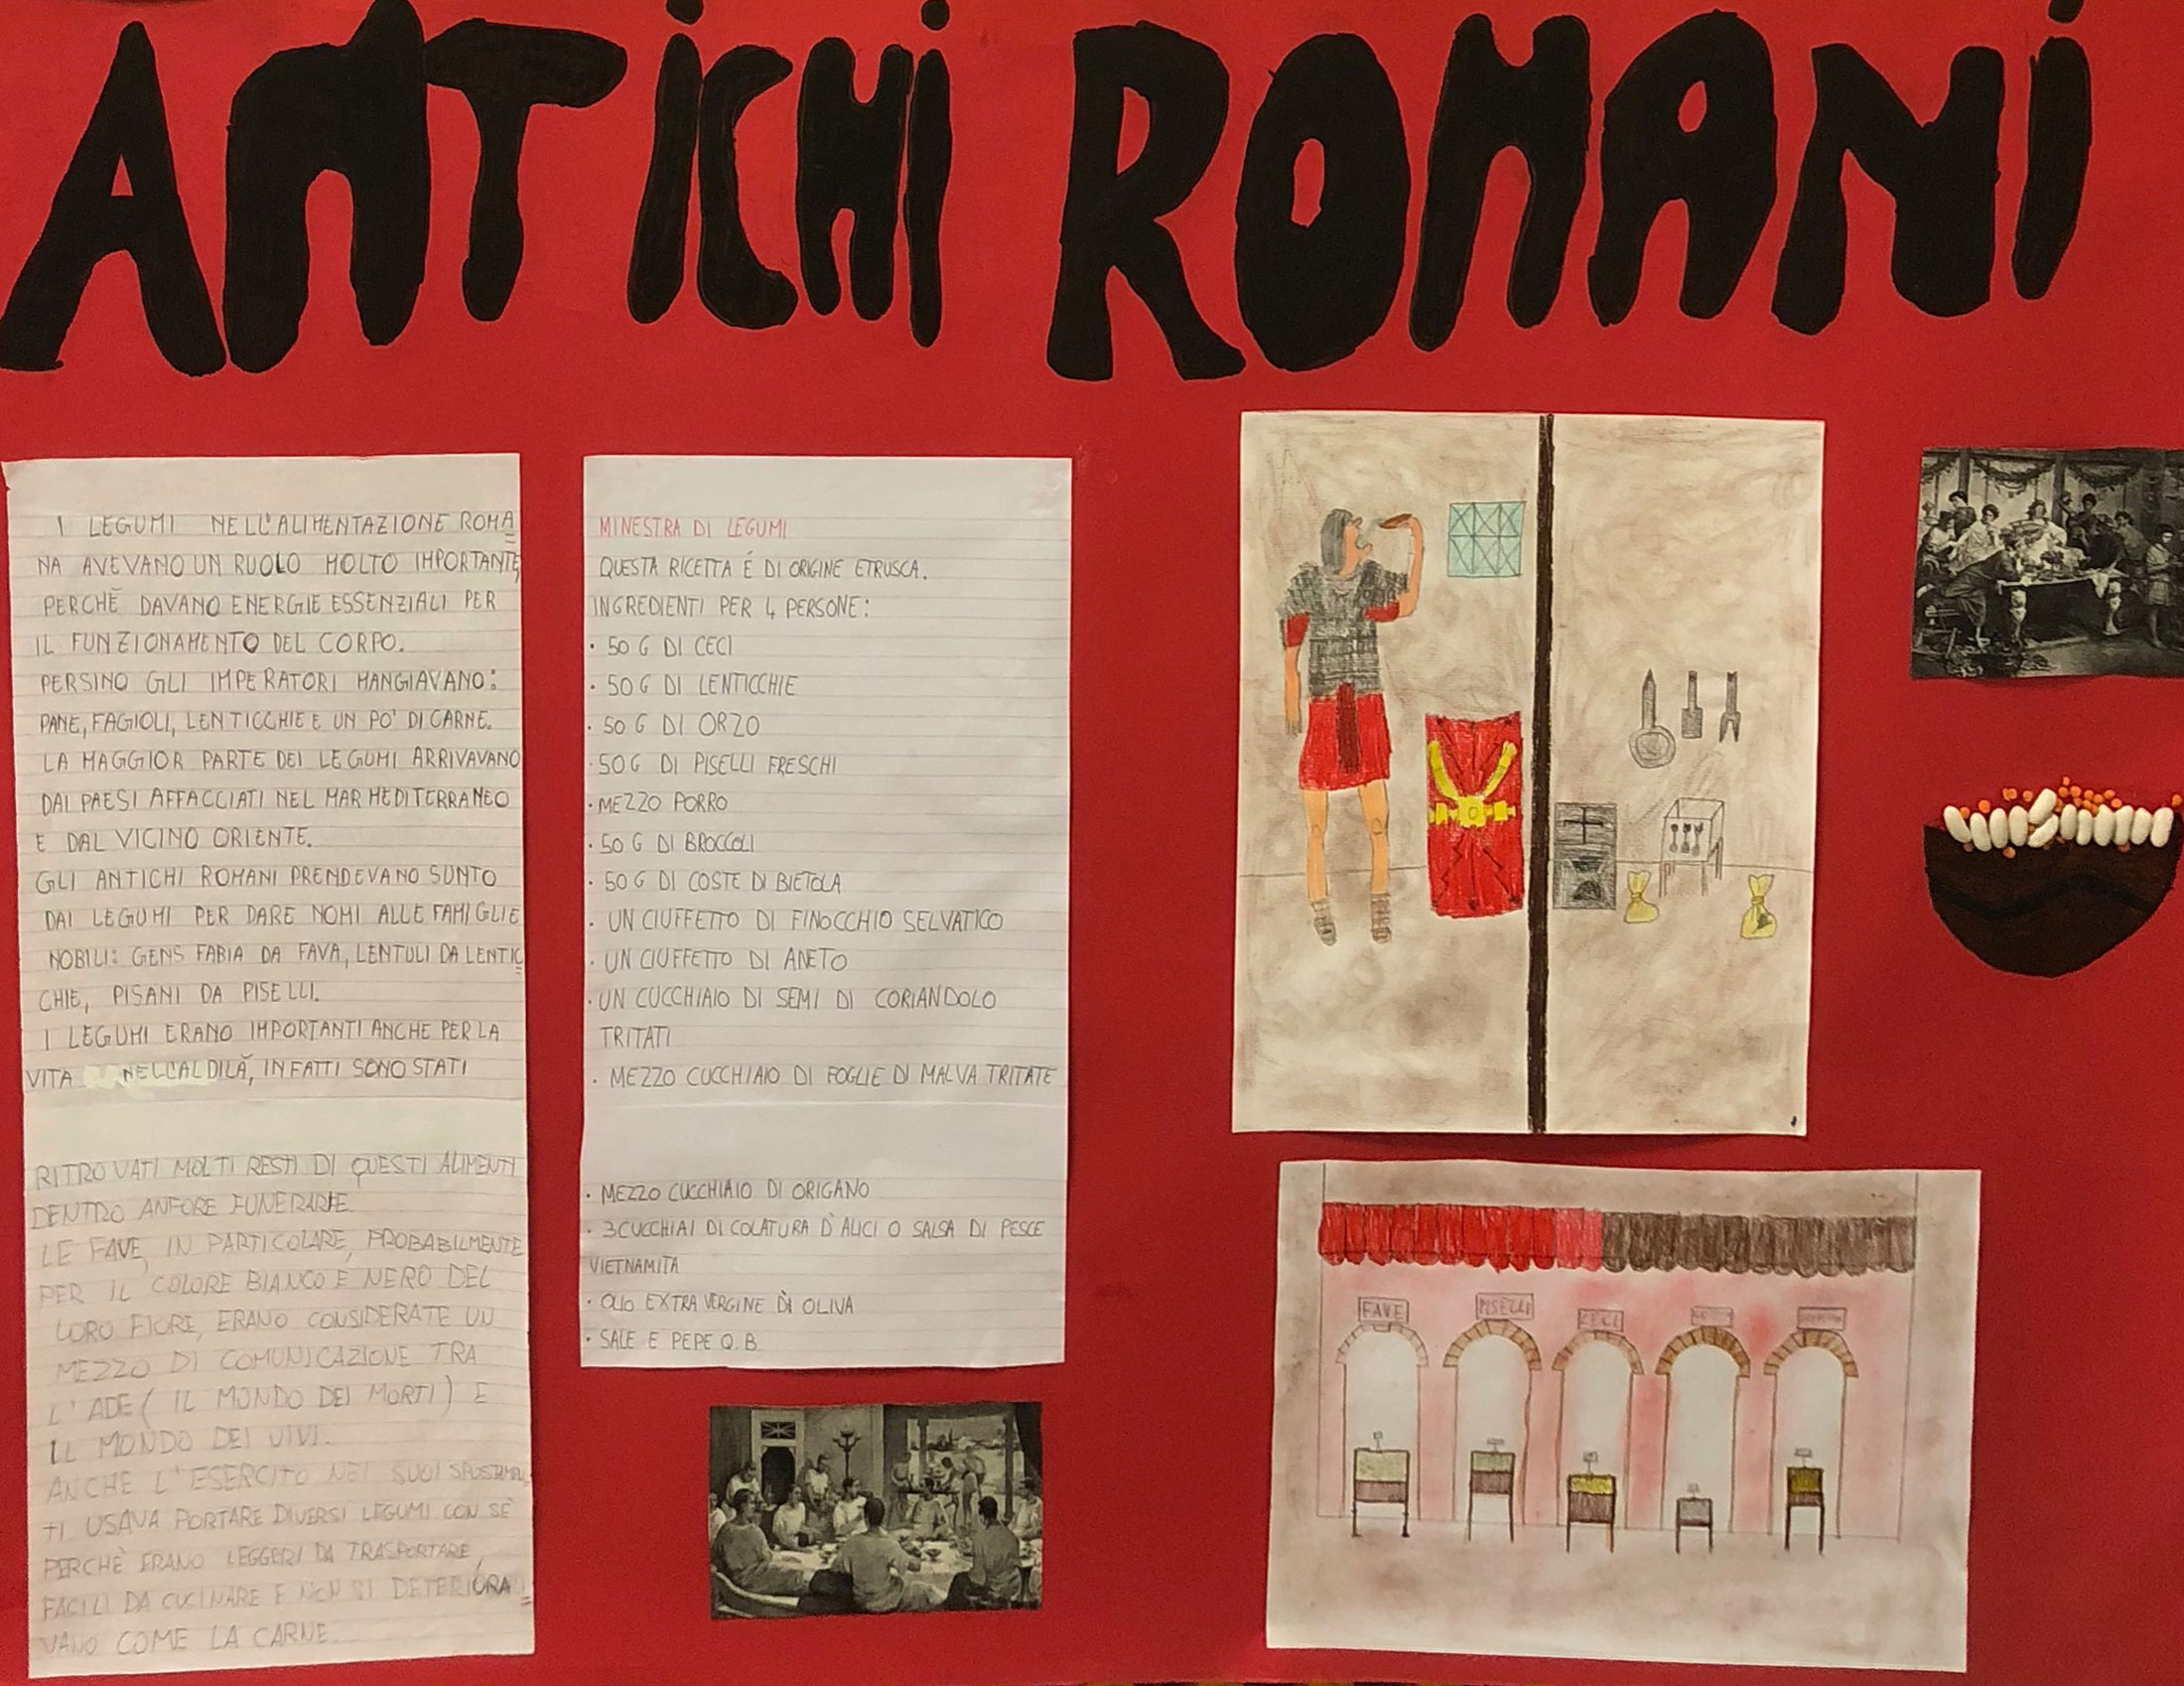 ANTICHI ROMANI
I LEGUMI NELL'ALIMENTAZIONE ROMA
NA AVEVANO UN RUOLO MOLTO IMPORTANTE,
PERCHÈ DAVANO ENERGIE ESSENZIALI PER
IL FUNZIONAMENTO DEL CORPO.
PERSINO GLI IMPERATORI MANGIAVANO:
PANE, FAGIOLI, LENTICCHIE E UN PO' DI CARNE.
LA MAGGIOR PARTE DEI LEGUMI ARRIVAVANO
DAI PAESI AFFACCIATI NEL MAR MEDITERRANEO
E DAL VICINO ORIENTE.
GLI ANTICHI ROMANI PRENDEVANO SUNTO
DAI LEGUMI PER DARE NOMI ALLE FAMIGLIE
NOBILI: GENS FABIA DA FAVA, LENTULI DA LENTIC
CHIE, PISANI DA PISELLI.
I LEGUMI ERANO IMPORTANTI ANCHE PER LA
VITA NELL'ALDILÀ, INFATTI SONO STATI
RITROVATI MOLTI RESTI DI QUESTI ALIMENTI
DENTRO ANFORE FUNERARIE.
LE FAVE, IN PARTICOLARE, PROBABILMENTE
PER IL COLORE BIANCO E NERO DEL
LORO FIORE, ERANO CONSIDERATE UN
MEZZO DI COMUNICAZIONE TRA
L'ADE ( IL MONDO DEI MORTI ) E
IL MONDO DEI VIVI.
ANCHE L'ESERCITO NEI SUOI SPOSTAMEN
TI USAVA PORTARE DIVERSI LEGUMI CON SÈ
PERCHÈ ERANO LEGGERI DA TRASPORTARE,
FACILI DA CUCINARE E NON SI DETERIORA
VANO COME LA CARNE.
MINESTRA DI LEGUMI
QUESTA RICETTA É DI ORIGINE ETRUSCA.
INGREDIENTI PER 4 PERSONE:
· 50 G DI CECI
· 50 G DI LENTICCHIE
· 50 G DI ORZO
· 50 G DI PISELLI FRESCHI
· MEZZO PORRO
· 50 G DI BROCCOLI
· 50 G DI COSTE DI BIETOLA
· UN CIUFFETTO DI FINOCCHIO SELVATICO
· UN CIUFFETTO DI ANETO
· UN CUCCHIAIO DI SEMI DI CORIANDOLO
TRITATI
· MEZZO CUCCHIAIO DI FOGLIE DI MALVA TRITATE
· MEZZO CUCCHIAIO DI ORIGANO
· 3 CUCCHIAI DI COLATURA D'ALICI O SALSA DI PESCE
VIETNAMITA
· OLIO EXTRA VERGINE DI OLIVA
· SALE E PEPE Q.B.
FAVE
PISELLI
CECI